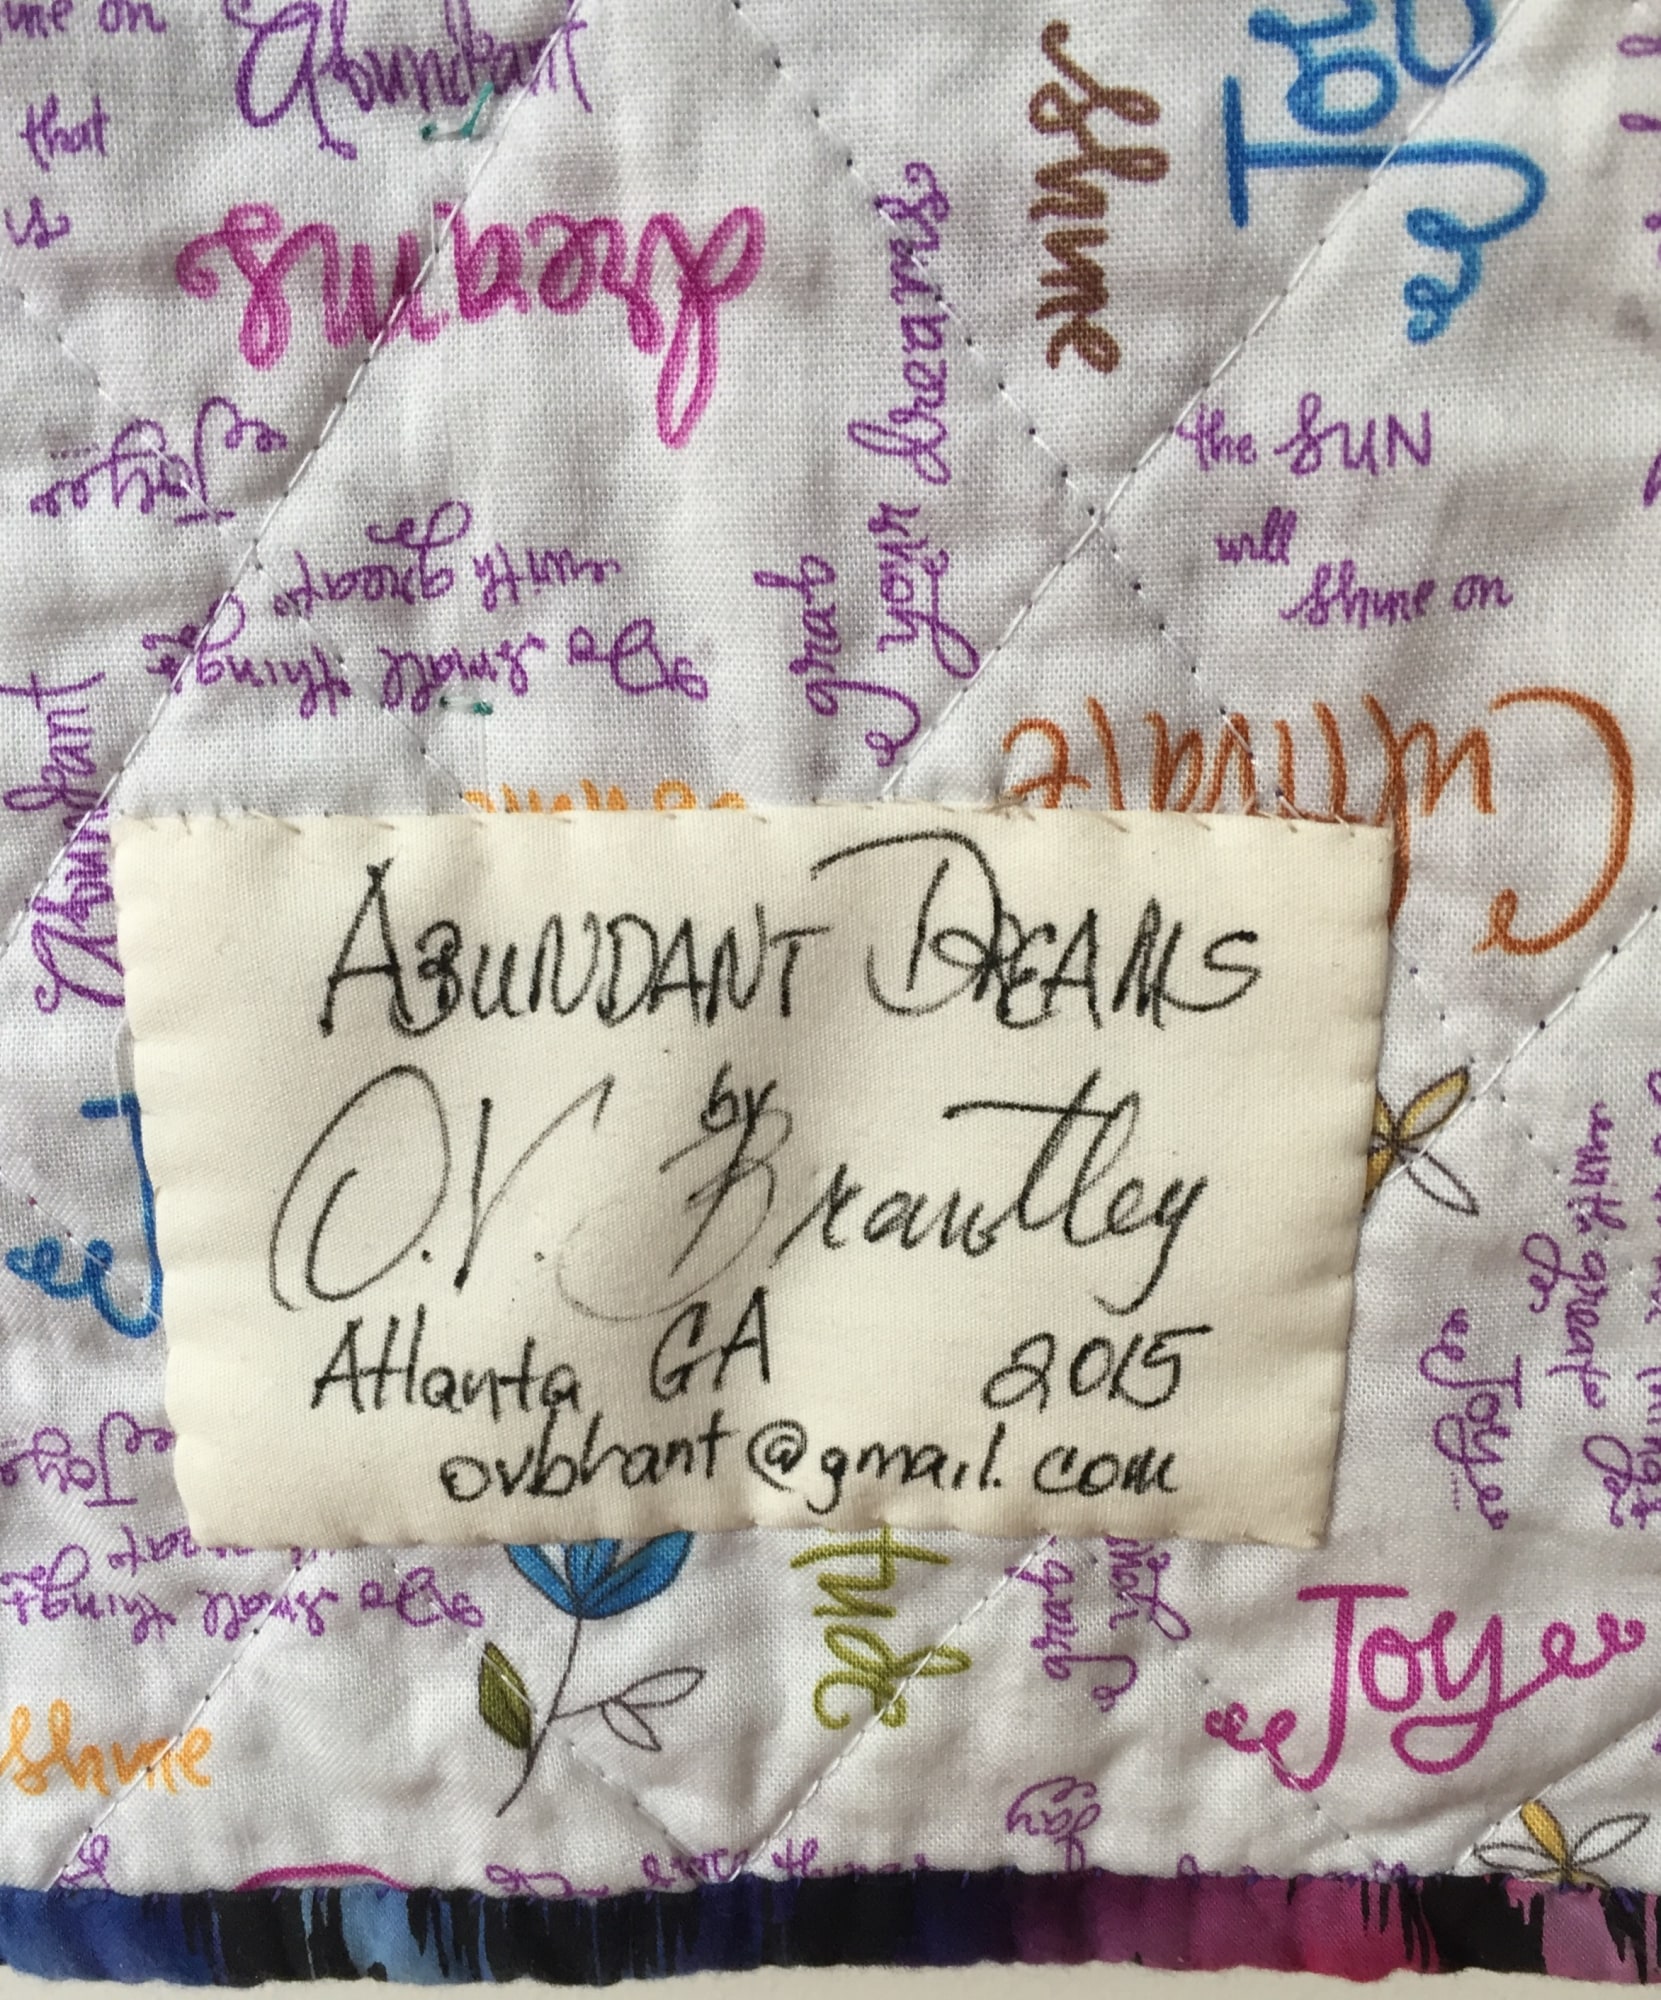 shine on
that
is
Abundant
dreams
Joy
Do small things
with great
Abundant
grab
your dreams
shine
Joy
the SUN
will
shine on
Cultivate
ABUNDANT DREAMS
by
O.V. Brantley
Atlanta GA 2015
ovbhant@gmail.com
Joy
Do small things
shine
the
grab
your
Joy
Joy
with great
things